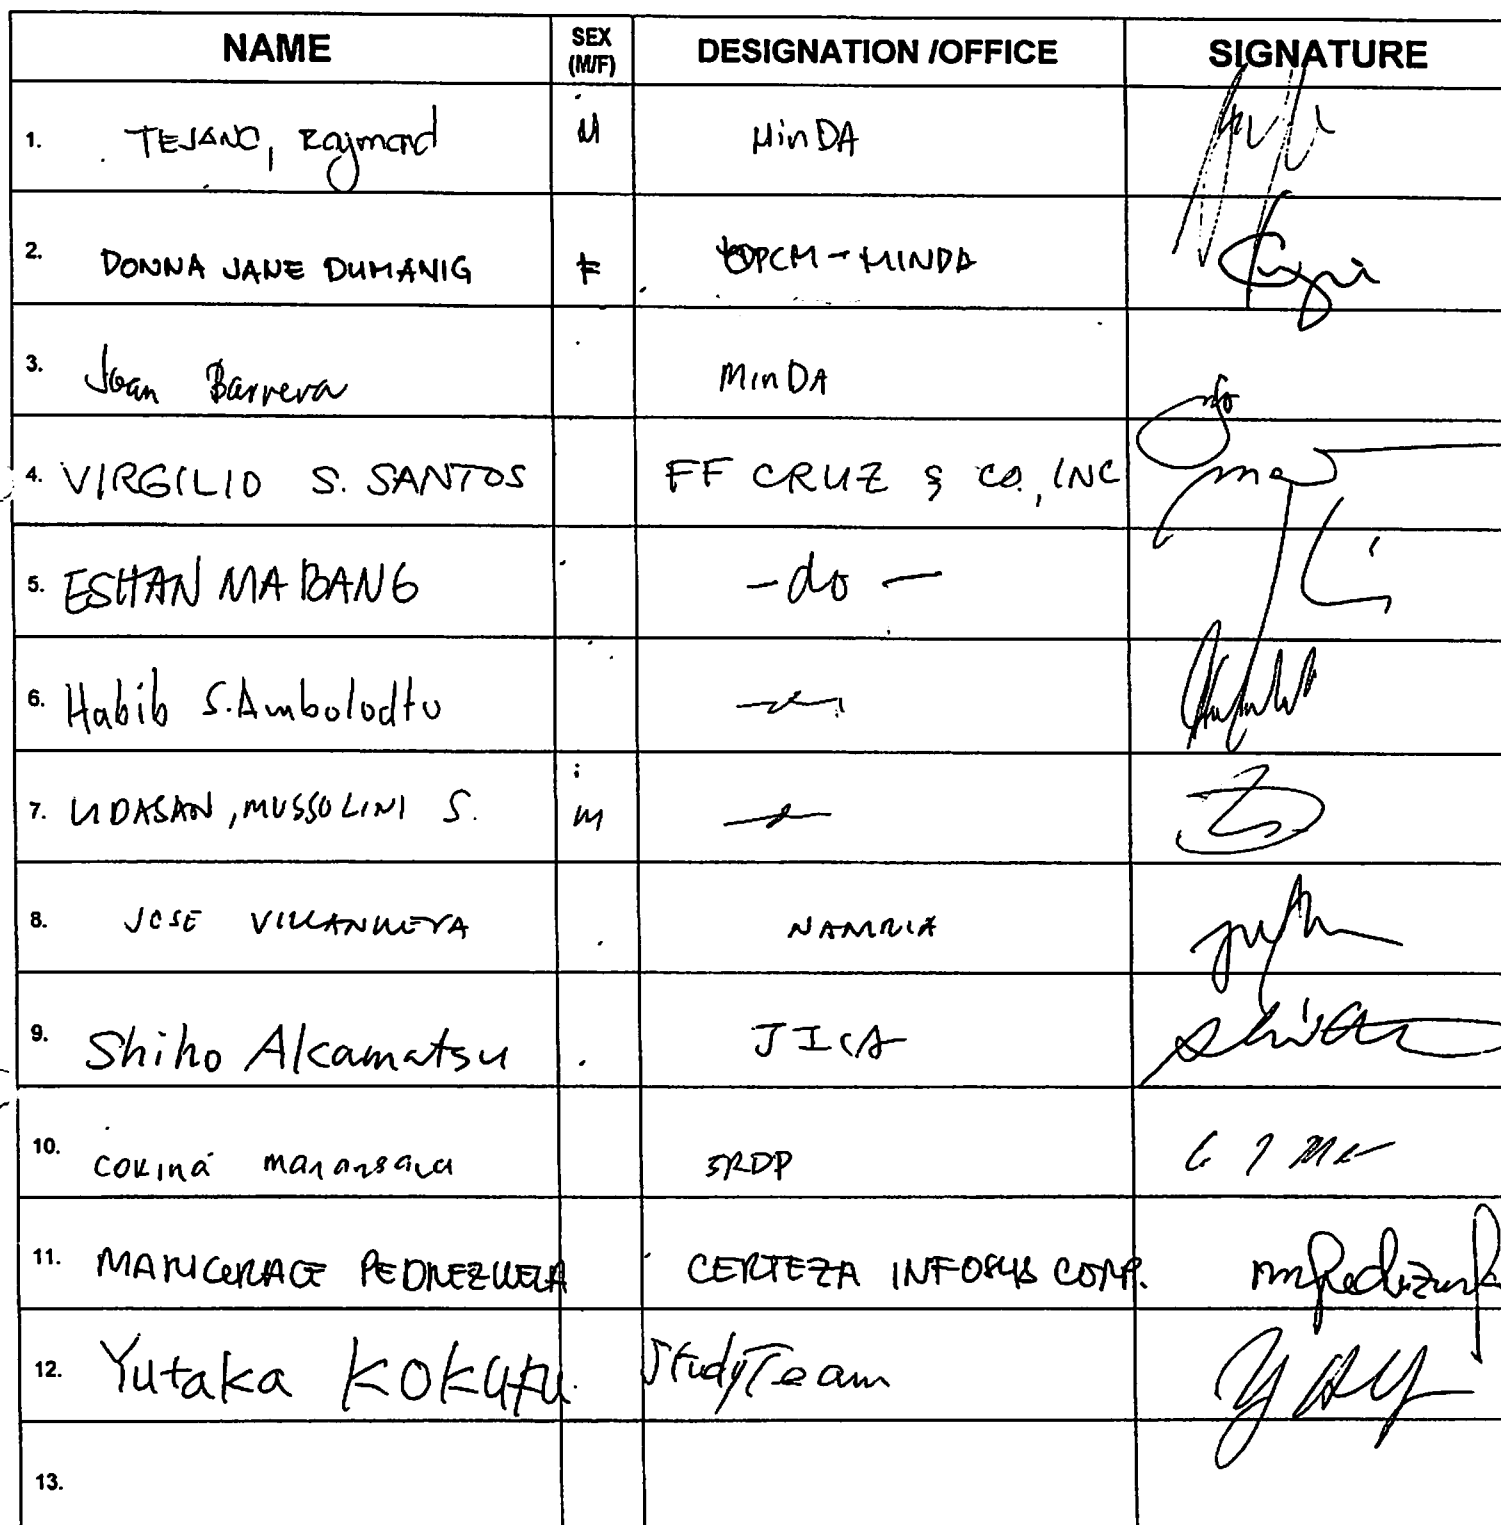 NAME SEX (M/F) DESIGNATION /OFFICE SIGNATURE
1. TEJANO, Raymond M MinDA
2. DONNA JANE DUMANIG F OPCM - MINDA
3. Joan Barrera MinDA
4. VIRGILIO S. SANTOS FF CRUZ & CO., INC
5. ESHAN MABANG - do -
6. Habib S. Ambolodto
7. UDASAN, MUSSOLINI S. M
8. JOSE VILLANUEVA NAMRIA
9. Shiho Akamatsu JICA
10. CORINA
11. MARICGRACE PEDREZUELA CERTEZA INFOSYS CORP.
12. Yutaka KOKUFU Study Team
13.